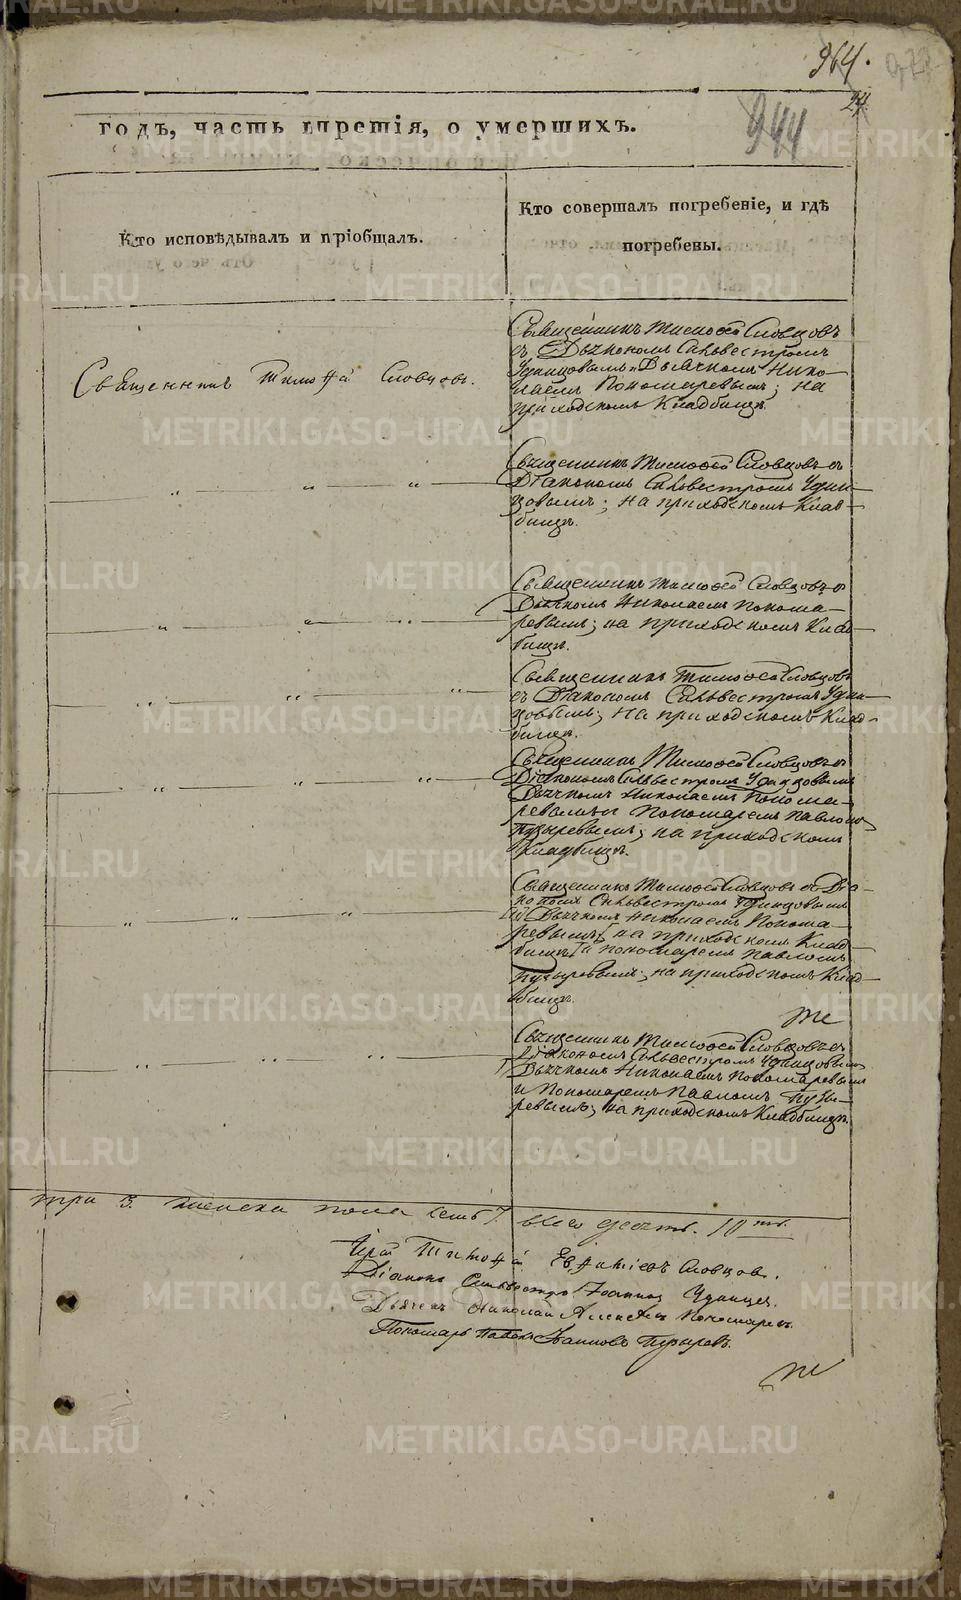 964.
944
24
годъ, часть третія, о умершихъ.
Кто исповѣдывалъ и пріобщалъ.
Кто совершалъ погребеніе, и гдѣ
погребены.
Священникъ Тимоѳей Словцовъ.
Священникъ Тимоѳей Словцовъ
съ Дьякономъ Сильвестромъ
Удинцовымъ и Дьячкомъ Нико-
лаемъ Пономаревымъ; на
приходскомъ Кладбищѣ.
Священникъ Тимоѳей Словцовъ съ
Діакономъ Сильвестромъ Удин-
цовымъ; на приходскомъ Клад-
бищѣ.
Священникъ Тимоѳей Словцовъ съ
Дьячкомъ Николаемъ Понома-
ревымъ; на приходскомъ Клад-
бищѣ.
Священникъ Тимоѳей Словцовъ
съ Діакономъ Сильвестромъ Удин-
цовымъ; на приходскомъ Клад-
бищѣ.
Священникъ Тимоѳей Словцовъ съ
Діакономъ Сильвестромъ Удинцовымъ
Дьячкомъ Николаемъ Понома-
ревымъ и Пономаремъ Павломъ
Пузыревымъ; на приходскомъ
Кладбищѣ.
Священникъ Тимоѳей Словцовъ съ Діа-
кономъ Сильвестромъ Удинцовымъ
Дьячкомъ Николаемъ Понома-
ревымъ на приходскомъ Клад-
бищѣ и Пономаремъ Павломъ
Пузыревымъ; на приходскомъ Клад-
бищѣ.
Священникъ Тимоѳей Словцовъ съ
Діакономъ Сильвестромъ Удинцовымъ
Дьячкомъ Николаемъ Пономаревымъ
и Пономаремъ Павломъ Пузы-
ревымъ; на приходскомъ Кладбищѣ.
три 3. женска пола семь 7. всего десять. 10ть.
Іерей Тимоѳей Евѳиміевъ Словцовъ.
Діаконъ Сильвестръ Іоанновъ Удинцев.
Дьячекъ Николай Алексѣевъ Пономаревъ.
Пономарь Павелъ Іоанновъ Пузыревъ.
METRIKI.GASO-URAL.RU